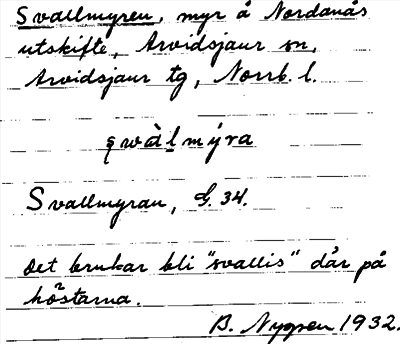 Svallmyren, myr å Nordanås
utskifte, Arvidsjaur sn,
Arvidsjaur tg, Norrb. l.
Svallmyran, G. 34.
Det brukar bli "svallis" där på
höstarna.
B. Nygren 1932.